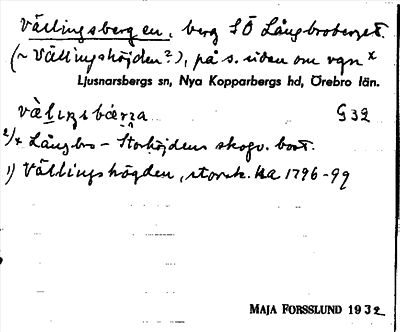 Vällingsbergen, berg SÖ Långbroberget.
(~ Vällingshöjden?), på s. sidan om vgn x
Ljusnarsbergs sn, Nya Kopparbergs hd, Örebro län.
G 32
2)x Långbro – Storhöjdens skogv. bost.
1) Vällingshögden, storsk. ka 1796-99
MAJA FORSSLUND 1932